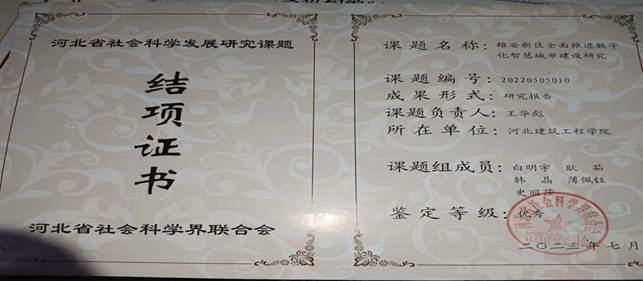 河北省社会科学发展研究课题
结项证书
河北省社会科学界联合会
课题名称：雄安新区全面推进数字
化智慧城市建设研究
课题编号：20220505010
成果形式：研究报告
课题负责人：王华彪
所在单位：河北建筑工程学院
课题组成员：白明宇 耿茹
韩晶 薄佩钰
史丽莎
鉴定等级：优秀
二〇二三年七月